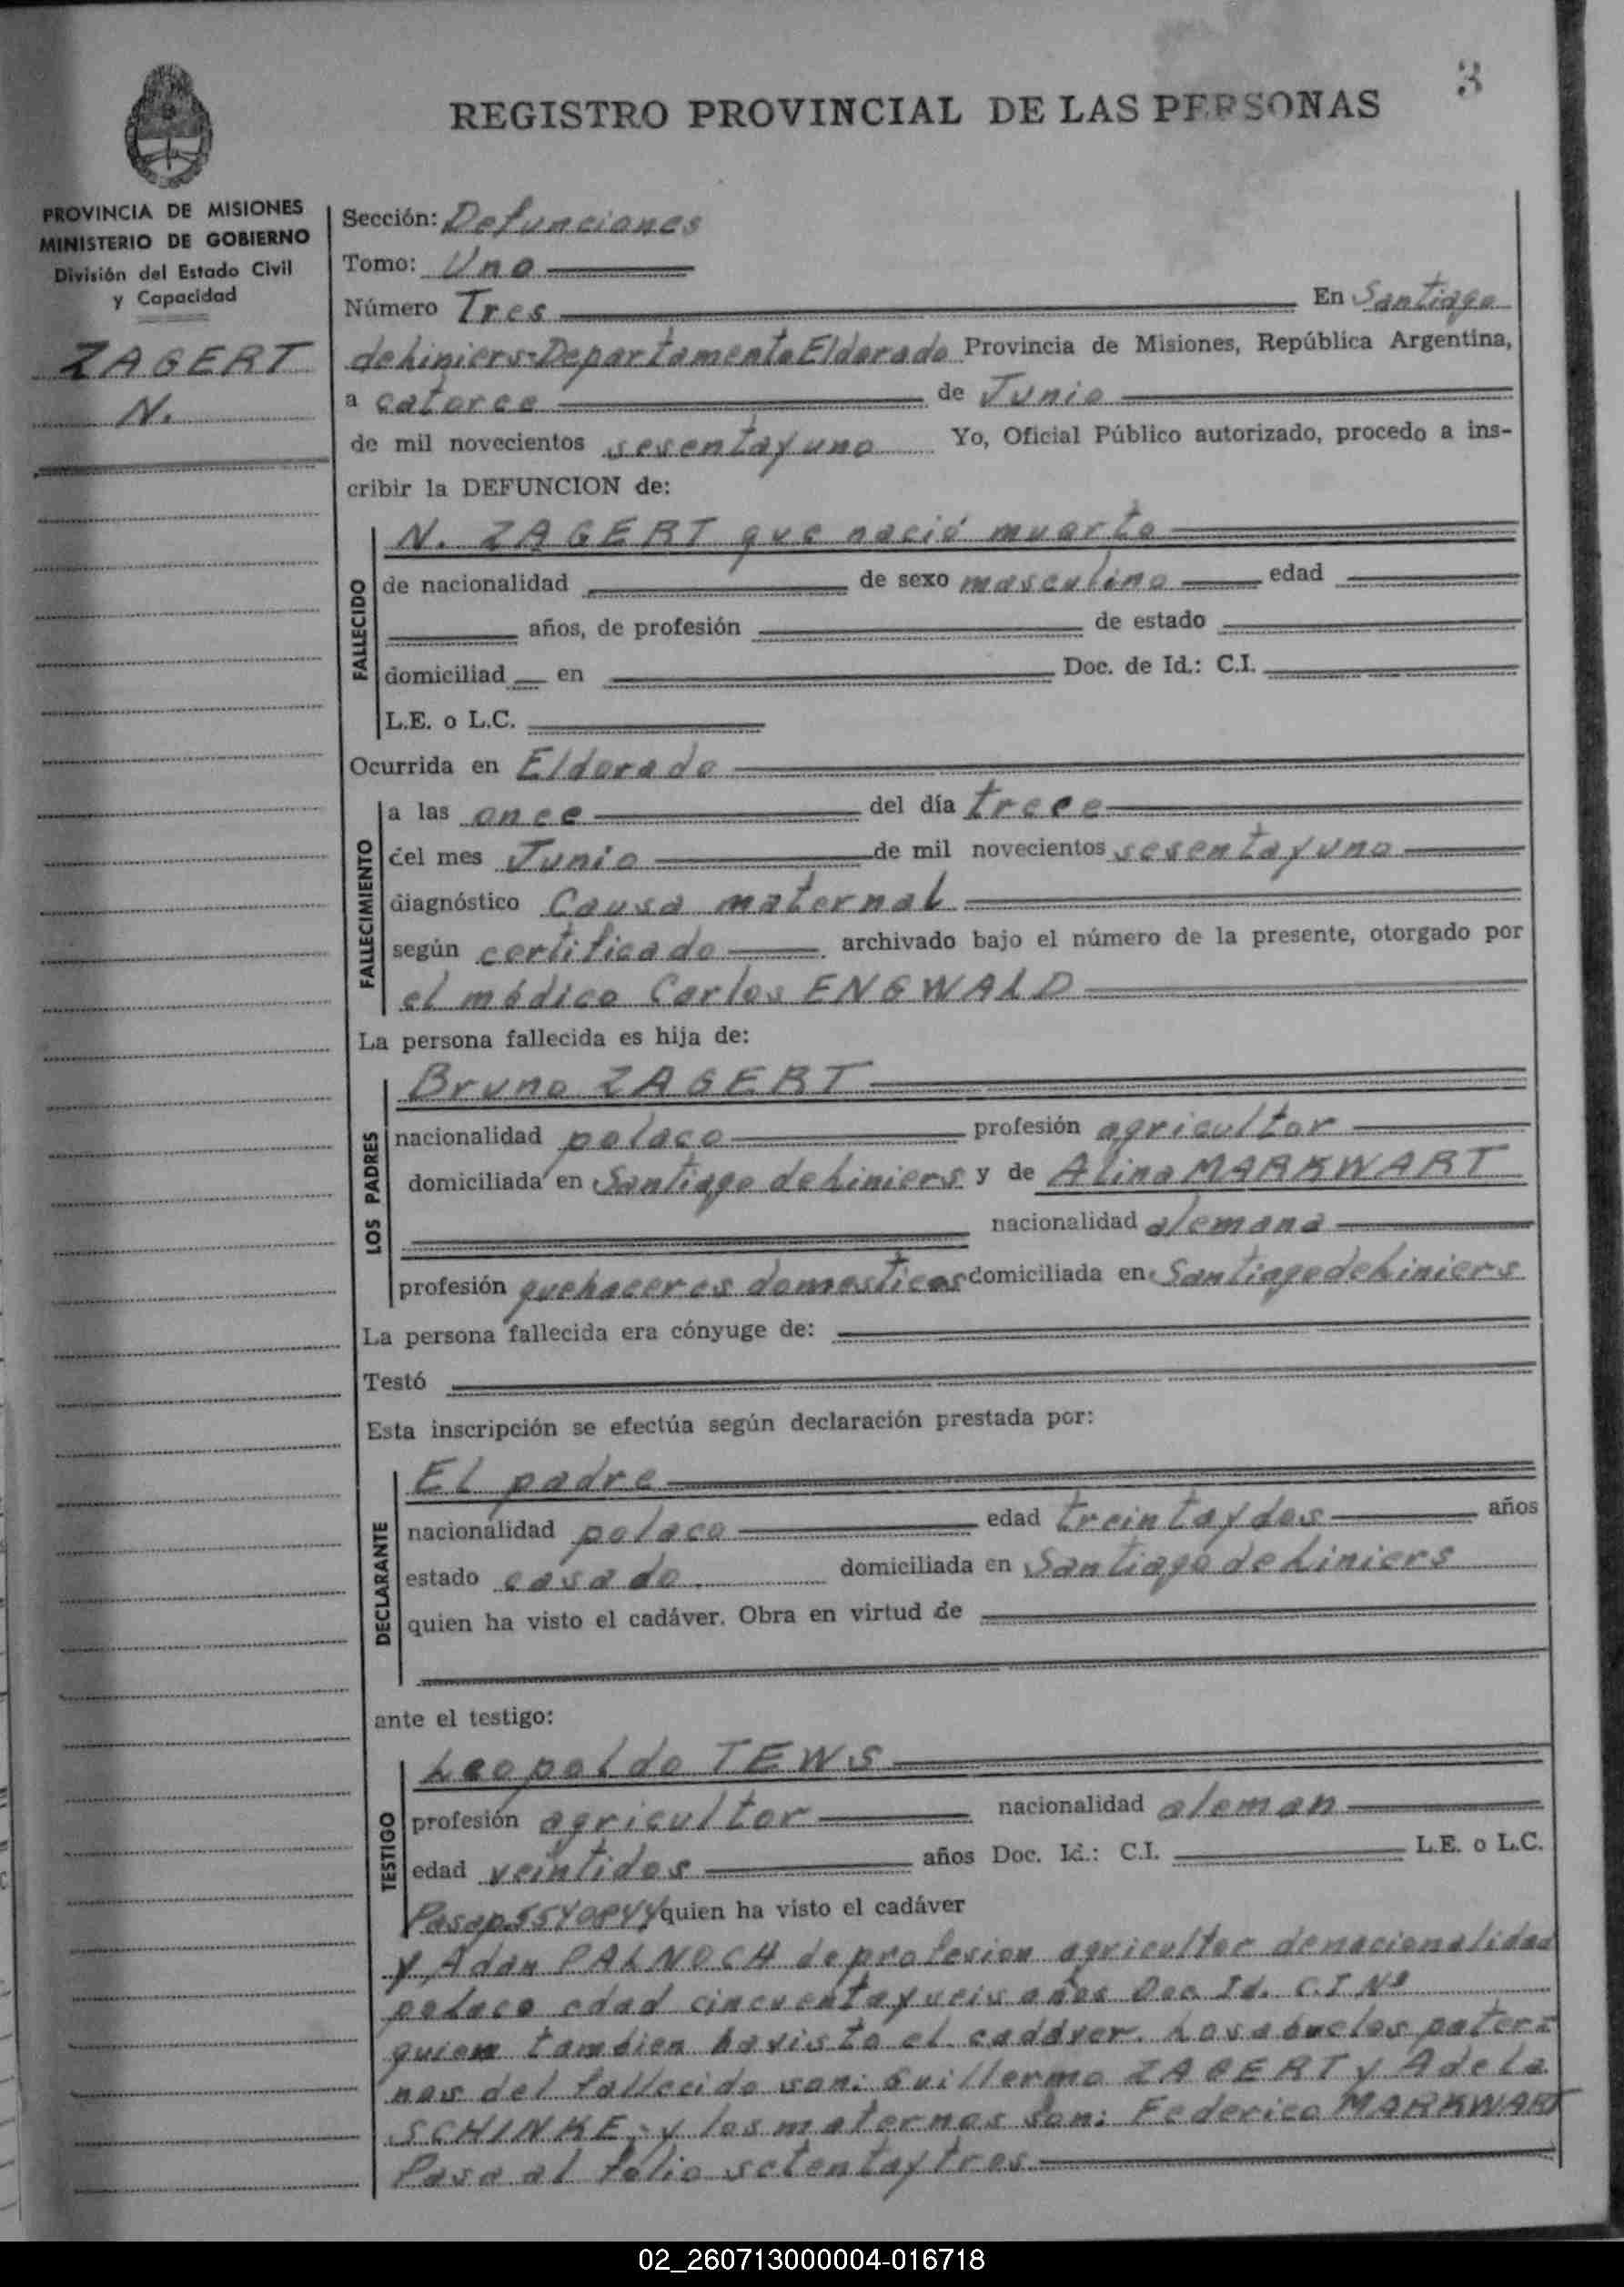 3
REGISTRO PROVINCIAL DE LAS PERSONAS
PROVINCIA DE MISIONES
MINISTERIO DE GOBIERNO
División del Estado Civil
y Capacidad
ZAGERT
N.
Sección: Defunciones
Tomo: Uno
Número Tres En Santiago
de Liniers-Departamento Eldorado Provincia de Misiones, República Argentina,
a catorce de Junio
de mil novecientos sesenta y uno Yo, Oficial Público autorizado, procedo a ins-
cribir la DEFUNCION de:
FALLECIDO
N. ZAGERT que nació muerto
de nacionalidad de sexo masculino edad
años, de profesión de estado
domiciliad en Doc. de Id.: C.I.
L.E. o L.C.
Ocurrida en Eldorado
FALLECIMIENTO
a las once del día trece
del mes Junio de mil novecientos sesenta y uno
diagnóstico Causa maternal
según certificado archivado bajo el número de la presente, otorgado por
el médico Carlos ENGWALD
La persona fallecida es hija de:
LOS PADRES
Bruno ZAGERT
nacionalidad polaco profesión agricultor
domiciliada en Santiago de Liniers y de Alina MARKWART
nacionalidad alemana
profesión quehaceres domesticos domiciliada en Santiago de Liniers
La persona fallecida era cónyuge de:
Testó
Esta inscripción se efectúa según declaración prestada por:
DECLARANTE
El padre
nacionalidad polaco edad treinta y dos años
estado casado domiciliada en Santiago de Liniers
quien ha visto el cadáver. Obra en virtud de
ante el testigo:
TESTIGO
Leopoldo TEWS
profesión agricultor nacionalidad aleman
edad veintidos años Doc. Id.: C.I. L.E. o L.C.
Pasap. quien ha visto el cadáver
y Adan PALNOCH de profesion agricultor de nacionalidad
polaco edad cincuenta y seis años Doc. Id. C.I. Nº
quien tambien ha visto el cadáver. Los abuelos pater-
nos del fallecido son: Guillermo ZAGERT y Adela
SCHINKE, y los maternos son: Federico MARKWART
Pasa al folio setenta y tres
02_260713000004-016718